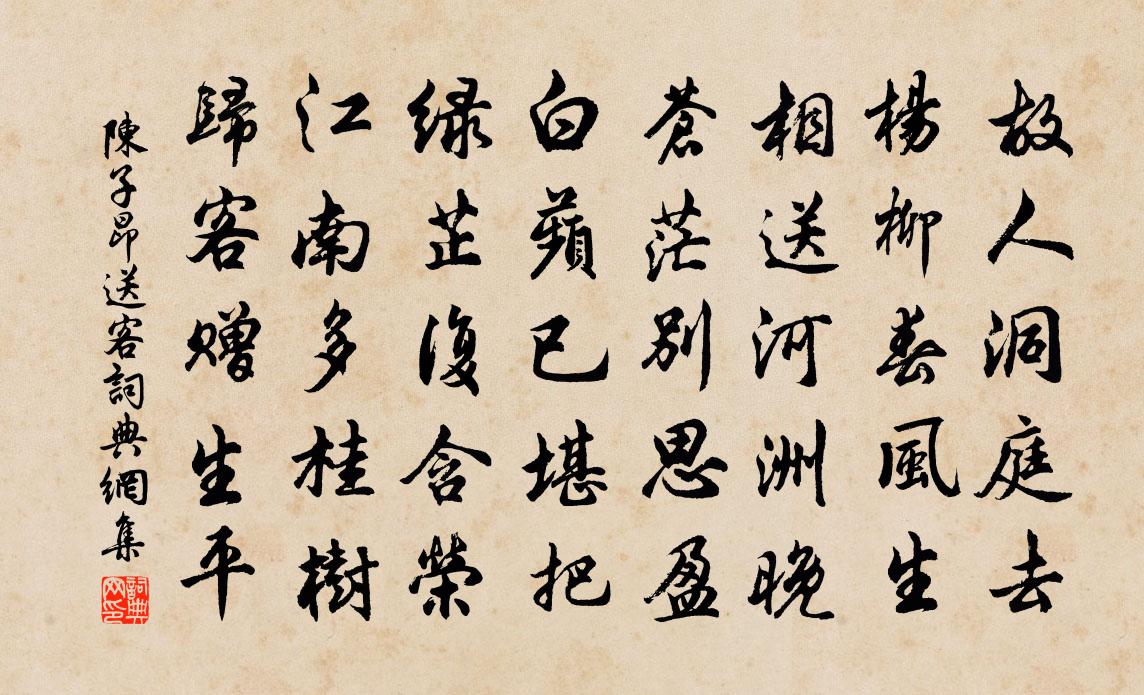 故人洞庭去
楊柳春風生
相送河洲晚
蒼茫別思盈
白蘋已堪把
緑芷復含榮
江南多桂樹
歸客贈生平
陳子昂送客詞典網集
詞典網印